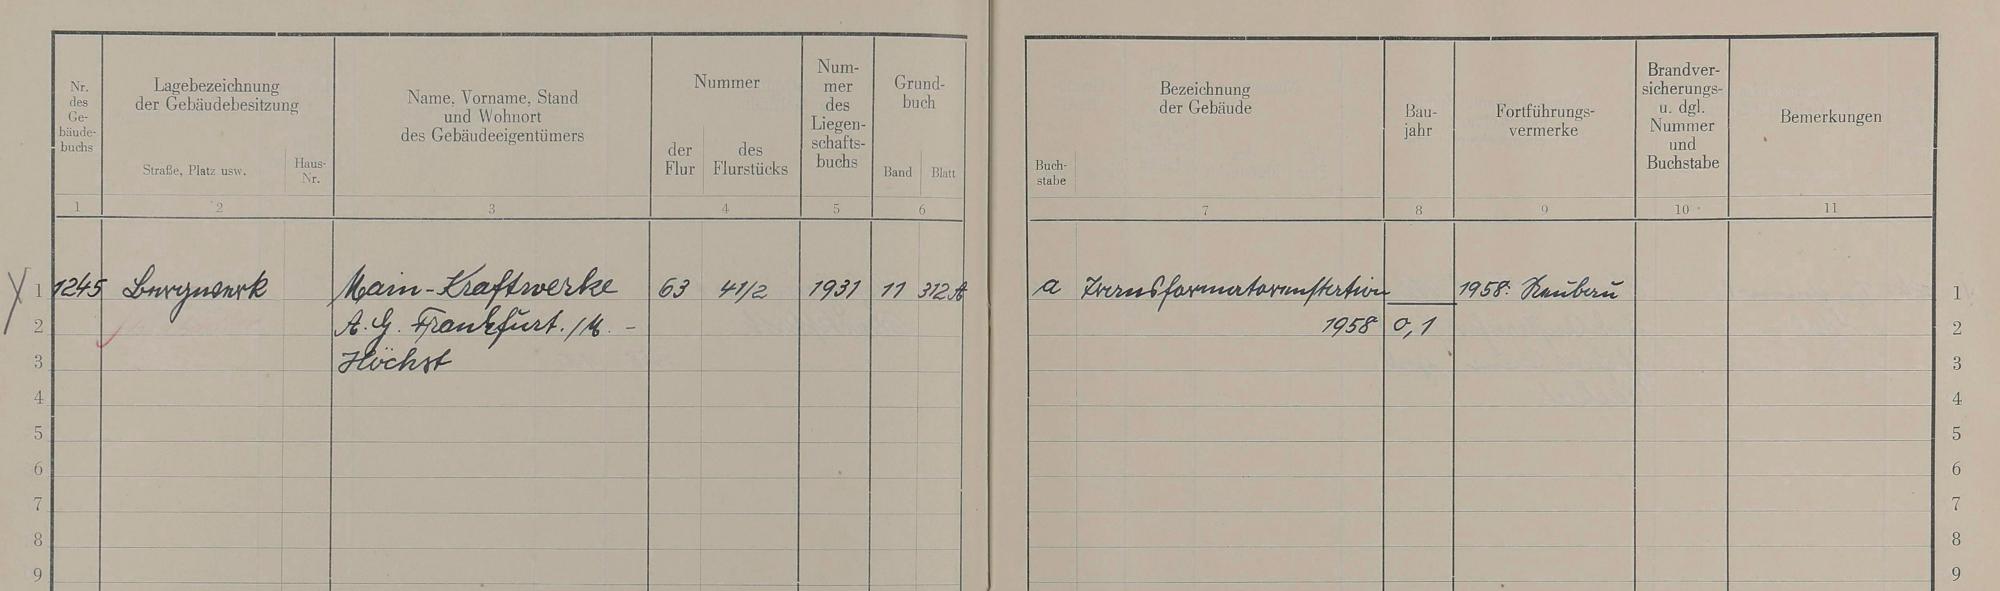 Nr. des Ge- bäude- buchs
Lagebezeichnung
der Gebäudebesitzung
Straße, Platz usw.
Haus- Nr.
Name, Vorname, Stand
und Wohnort
des Gebäudeeigentümers
Nummer
der Flur
des Flurstücks
Num- mer des Liegen- schafts- buchs
Grund- buch
Band
Blatt
1 2 3 4 5 6
1 1245 Bergwerk Main-Kraftwerke 63 41/2 1931 11 312A
2 A.G. Frankfurt./M. -
3 Höchst
4
5
6
7
8
9
Buch- stabe
Bezeichnung
der Gebäude
Bau- jahr
Fortführungs- vermerke
Brandver- sicherungs- u. dgl. Nummer und Buchstabe
Bemerkungen
7 8 9 10 11
a Transformatorenstation 1958: Neubau 1
1958 0,1 2
3
4
5
6
7
8
9